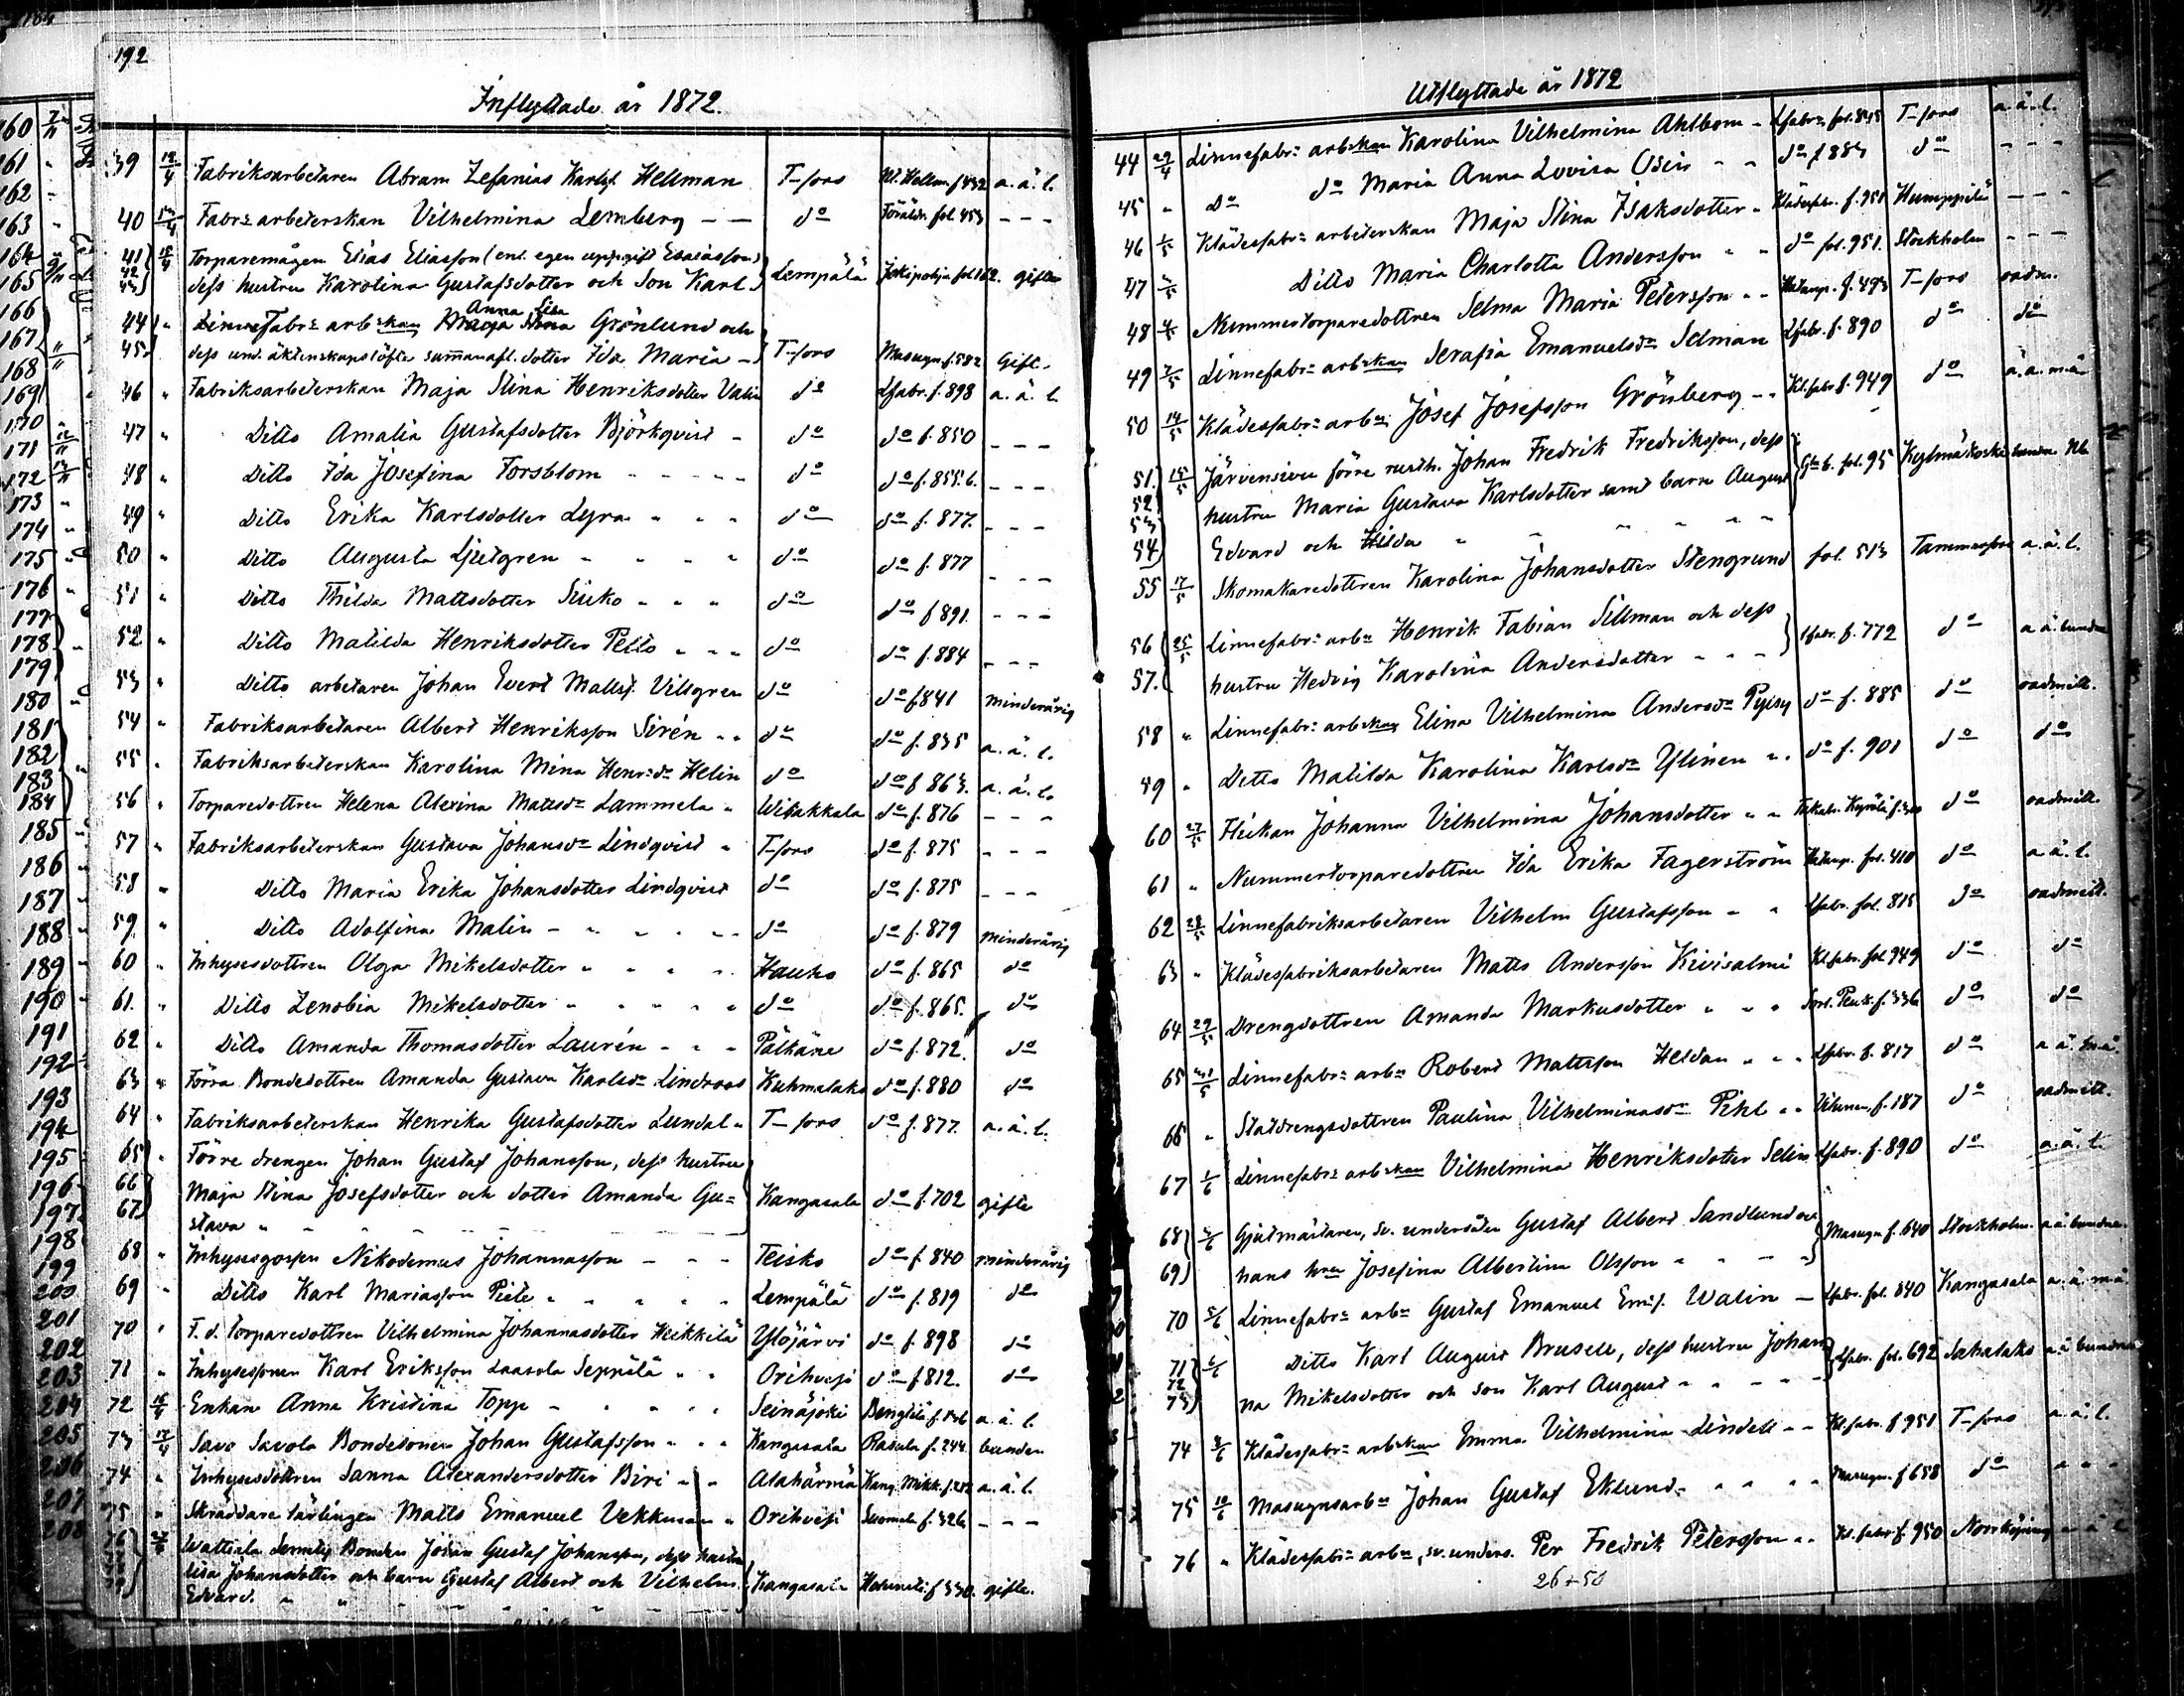 192
Inflyttade år 1872.
39 12/4 Fabriksarbetaren Abram Zefanias Karlss. Hellman T-fors f 432 a. ä. l.
40 Fabr: arbeterskan Vilhelmina Lemberg — — do fol 453 - - -
41 15/4 Torparemågen Elias Eliasson (enl. egen uppgift Esaiasson)
42 43 dess hustru Karolina Gustafsdotter och Son Karl Lempälä Jokipohja fol 162. gifte
44 " Linnefabr: arb:skan Anna Lisa Grönlund och
45 dess und. äktenskapslöfte sammanafl. dotter Ida Maria T-fors Masugn f. 582 Gift.
46 " Fabriksarbeterskan Maja Stina Henriksdotter Valin do Lfabr. f. 898 a. ä. l.
47 " Ditto Amalia Gustafsdotter Björkqvist - do do f. 850 - - -
48 " Ditto Ida Josefina Forsblom - - - - do do f. 855.b. - - -
49 " Ditto Erika Karlsdotter Lyra " " " do do f. 877. - - -
50 " Ditto Augusta Ljutgren " " " " do do f. 877 - - -
51 " Ditto Thilda Mattsdotter Siuko " " " do do f 891. - - -
52 " Ditto Matilda Henriksdotter Pello " " " do do f. 884 - - -
53 " Ditto arbetaren Johan Evert Mattss. Villgren do do f 841 minderårig
54 " Fabriksarbetaren Albert Henriksson Sirén " " do do f. 835 a. ä. l.
55 " Fabriksarbeterskan Karolina Mina Henr:dr Helin do do f 863. a. ä. l.
56 " Torparedottren Helena Alexina Mattsdr Lammela " Wesakkala do f. 876 - - -
57 " Fabriksarbeterskan Gustava Johansdr Lindqvist " T-fors do f. 875 - - -
58 " Ditto Maria Erika Johansdotter Lindqvist do do f. 875 - - -
59. " Ditto Adolfina Malin - " " " " do do f. 879 minderårig
60 " Inhysesdottren Olga Mikelsdotter " " " " Hauho do f. 865 do
61. " Ditto Zenobia Mikelsdotter " " " " " do do f. 865. do
62 " Ditto Amanda Thomasdotter Laurén - " - Pälkäne do f. 872. do
63 " Förra Bondedottren Amanda Gustava Karlsdr Lindroos Kuhmalaks do f. 880 do
64 " Fabriksarbeterskan Henrika Gustafsdotter Lundal " T-fors do f. 877. a. ä. l.
65 " Förre drengen Johan Gustaf Johansson, dess hustru
66 67 Maja Stina Josefsdotter och dotter Amanda Gu= Kangasala do f. 702 gifte
stava " " " " " "
68 " Inhysesgossen Nikodemus Johannasson - - - Teisko do f 840 minderårig
69 " Ditto Karl Mariasson Piele " " " " " Lempälä do f. 819 do
70 " F. d. Torparedottren Vilhelmina Johannasdotter Heikkilä Ylöjärvi do f. 898 do
71 " Inhysessonen Karl Eriksson Laasola Seppälä " " Orihvesi do f 812. do
72 Enkan Anna Kristina Topp - " " " " Seinäjoki a. ä. l.
73 17/4 Savo Savola Bondesonen Johan Gustafsson " " " Kangasala f. 244. bunden
74 " Inhysesdottren Sanna Alexandersdotter Biri " " Alahärmä a. ä. l.
75 " Skräddare lärlingen Matts Emanuel Vekkman " Orihvesi f. 326 - - -
76 Bonden Johan Gustaf Johansson, dess hustru
Lisa Johansdotter och barn Gustaf Albert och Vilhelm Kangasala f 330. gifte.
Edvard. " " " " " "
Utflyttade år 1872
44 29/4 Linnefabr: arb:skan Karolina Vilhelmina Ahlbom - Lfabr. fol. 845 T-fors a. ä. l.
45 " Do do Maria Anna Lovisa Osein " " do f 883 do - - -
46 Klädesfabr: arbeterskan Maja Stina Isaksdotter " Klädesfabr. f. 951 Humppila - - -
47 Ditto Maria Charlotta Andersson " " do fol. 951. Stockholm - - -
48 Nummertorparedottren Selma Maria Petersson " " f. 493 T-fors oadm.
49 7/5 Linnefabr: arb:skan Serafia Emanuelsdr Selman Lfabr. f. 890 do do
50 14/5 Klädesfabr: arb:n Josef Josefsson Grönberg - " Kl.fabr. f. 949 do a. ä. m. ä.
51. 15/5 Järvensivu förre rusth. Johan Fredrik Fredriksson, dess
52 53 hustru Maria Gustava Karlsdotter samt barn August fol. 95 Kylmäkoski
54 Edvard och Hilda " " " " " "
55 17/5 Skomakaredottren Karolina Johansdotter Stengrund fol. 513 Tammerfors a. ä. l.
56 25/5 Linnefabr: arb:n Henrik Fabian Sillman och dess
57. hustru Hedvig Karolina Andersdotter " " - Lfabr. f. 772 do a ä. bundne
58 " Linnefabr: arb:skan Elina Vilhelmina Andersdr Pyysy do f. 885 do oadmitt.
59 " Ditto Matilda Karolina Karlsdr Ylinen " " do f. 901 do do
60 27/5 Flickan Johanna Vilhelmina Johansdotter " " do oadmitt.
61 " Nummertorparedottren Ida Erika Fagerström fol. 410 do a. ä. l.
62 28/5 Linnefabriksarbetaren Vilhelm Gustafsson " " Lfabr. fol. 815 do oadmitt.
63 " Klädesfabriksarbetaren Matts Andersson Kivisalmi Kl.fabr. fol 949 do do
64 29/5 Drengdottren Amanda Markusdotter " " " f. 336 do do
65 31/5 Linnefabr: arb:n Robert Mattsson Heldan " " " Lfabr. f. 817 do a ä. m. ä.
66 " Statdrengsdottren Paulina Vilhelminasdr Pihl " " f. 187 do oadmitt.
67 1/6 Linnefabr: arb:skan Vilhelmina Henriksdotter Selin Lfabr. f. 890 do a. ä. l.
68 Gjutmästaren, sv. undersåten Gustaf Albert Sandlund och
69 hans h:ru Josefina Albertina Olsson " " " " Masugn f. 640 Stockholm a ä. bundne
70 5/6 Linnefabr: arb:n Gustaf Emanuel Em:s. Walin — Lfabr. fol. 840 Kangasala a. ä. m. ä.
71 Ditto Karl August Brusell, dess hustru Johan
72 73 na Mikelsdotter och son Karl August " " " " Lfabr. fol. 692 Sahalaks a ä bundne
74 Klädesfabr: arb:skan Emma Vilhelmina Lindell - - Kl.fabr. f 951 T-fors a. ä. l.
75 10/6 Masugnsarb:n Johan Gustaf Eklund " " " " Masugn f 658 do " " "
76 " Klädesfabr: arb:n, sv. unders. Per Fredrik Petersson " " Kl.fabr. f. 950 Norrköping
26+50